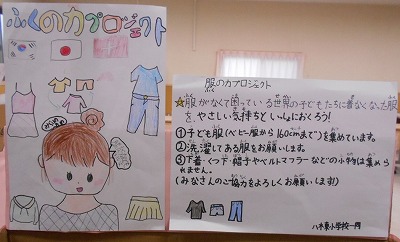 ふくの力プロジェクト
服の力プロジェクト
☆服がなくて困っている世界の子どもたちに着なくなった服
を、やさしい気持ちといっしょにおくろう!
①子ども服(ベビー服から160cmまで)を集めています。
②洗濯してある服をお願いします。
③下着・くつ下・帽子やベルトマフラーなどの小物は集めら
れません。
(みなさんのご協力をよろしくお願いします!)
小学校一同